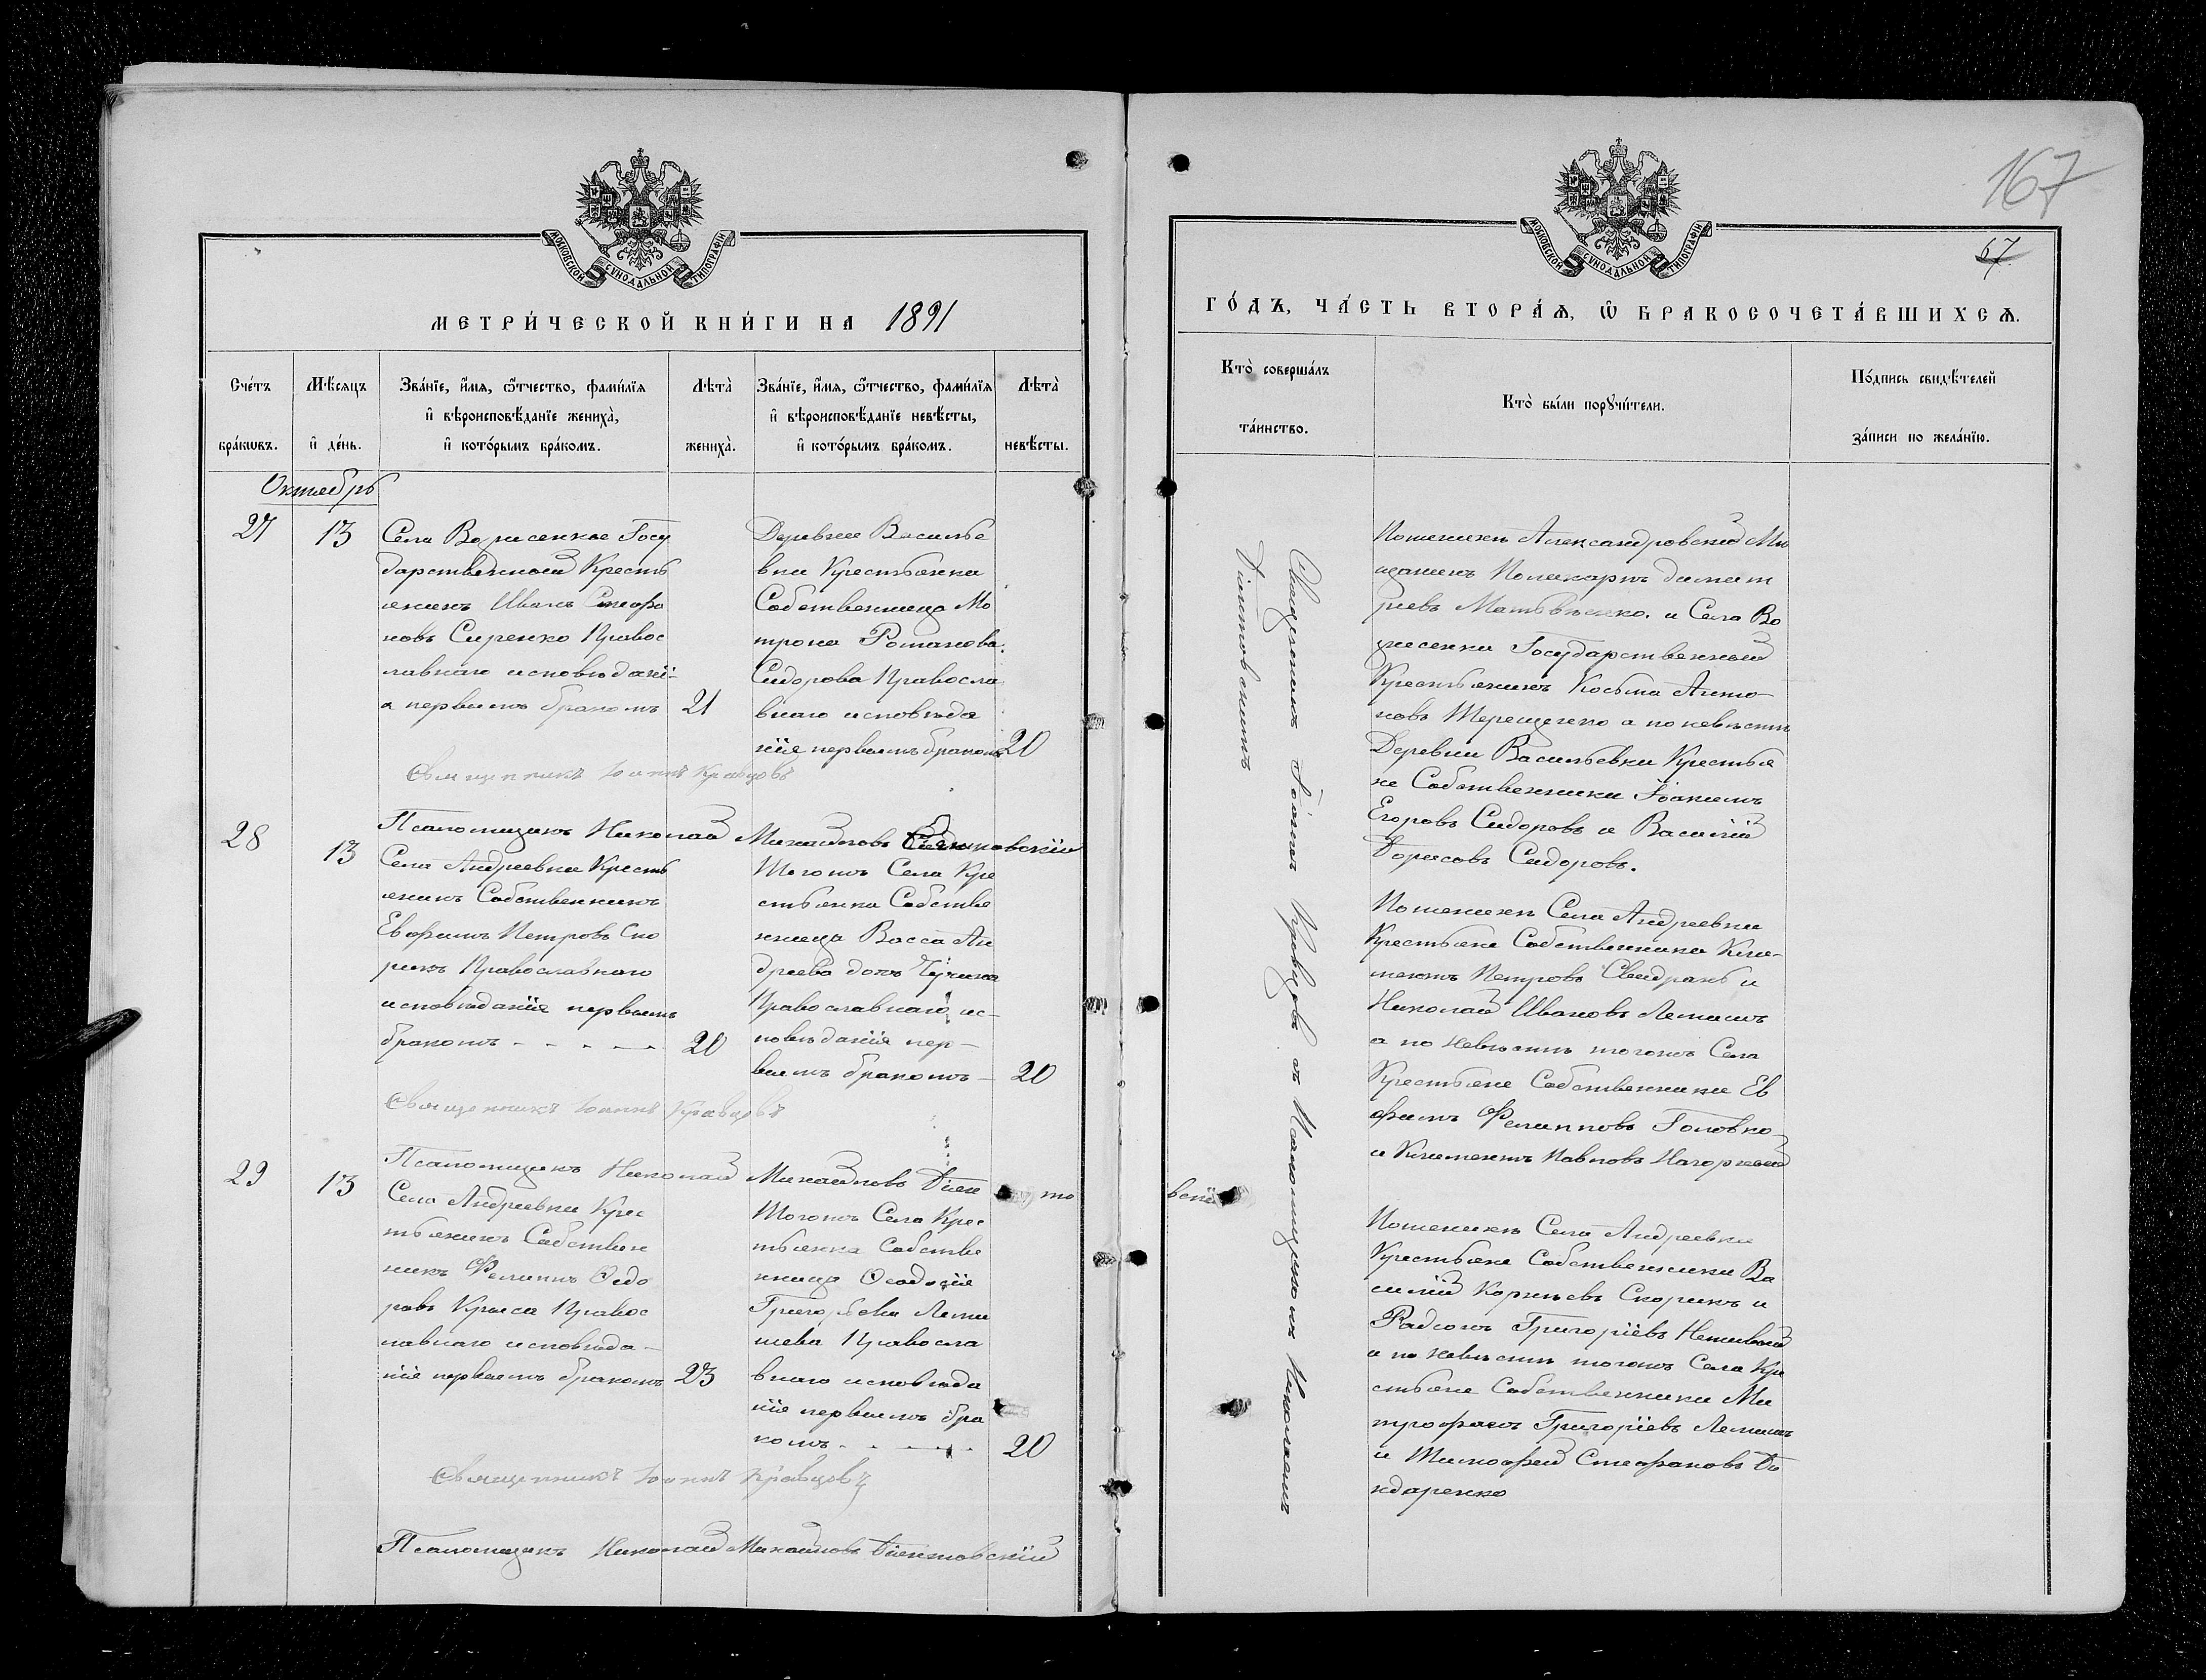 МОСКОВСКОЙ СѴНОДАЛЬНОЙ ТИПОГРАФІИ
МЕТРИ́ЧЕСКОЙ КНИ́ГИ НА 1891
Сче́тъ бра́кѡвъ.
Мѣ́сяцъ и҆ де́нь.
Зва́нїе, и҆́мя, ѻ҆́тчество, фами́лїя и҆ вѣроисповѣ́данїе жениха̀, и҆ кото́рымъ бра́комъ.
Лѣта̀ жениха̀.
Зва́нїе, и҆́мя, ѻ҆́тчество, фами́лїя и҆ вѣроисповѣ́данїе невѣ́сты, и҆ кото́рымъ бра́комъ.
Лѣта̀ невѣ́сты.
Октябрь
27
13
Села Вознесенкое Госу
дарственный Кресть
янинъ Иванъ Стефа
новъ Сиренко Правос
лавнаго исповѣдані-
я первымъ бракомъ
21
Деревни Василье
вки Крестьянка
Собственница Мо
трона Романова
Сидорова Правосла
внаго исповѣда
нія первымъ бракомъ
20
Священникъ Іоаннъ Кравцовъ
Псаломщикъ Николай Михайловъ
28
13
Села Андреевки Кресть
янинъ Собственникъ
Евфимъ Петровъ Ско
рикъ Православнаго
исповѣданія первымъ
бракомъ - - - - -
20
Тогожъ Села Кре
стьянка Собстве
нница Васса Ан
дреева дочь
Православнаго ис-
повѣданія пер-
вымъ бракомъ -
20
Священникъ Іоаннъ Кравцовъ
Псаломщикъ Николай Михайловъ Діентовскій
29
13
Села Андреевки Крес
тьянинъ Собствен
никъ Филиппъ Ѳедо
ровъ Крыса Правос
лавнаго исповѣда-
нія первымъ бракомъ
23
Тогожъ Села Крес
тьянка Собстве
нница Ѳеодосія
Григорьева Леми
шева Правосла
внаго исповѣда
нія первымъ бра
комъ - - - - -
20
Священникъ Іоаннъ Кравцовъ
Псаломщикъ Николай Михайловъ Діентовскій
167
67
МОСКОВСКОЙ СѴНОДАЛЬНОЙ ТИПОГРАФІИ
ГО́ДЪ, ЧА́СТЬ ВТОРА́Ѧ, Ѽ БРАКОСОЧЕТА́ВШИХСѦ.
Кто̀ соверша́лъ та́инство.
Кто̀ бы́ли порꙋчи́тели.
По́дпись свидѣ́телей за́писи по жела́нїю.
Священникъ Іоаннъ Кравцовъ съ Псаломщикомъ Николаемъ
Діентовскимъ
Поженихѣ Александровскій Мѣ
щанинъ Поликарпъ Димит
ріевъ Матвѣенко. и Села Во
знесенки Государственный
Крестьянинъ Косьма Анто-
новъ Терещенко а по невѣстѣ
Деревни Васильевки Крестья
не Собственники Іоакимъ
Егоровъ Сидоровъ и Василій
Борисовъ Сидоровъ.
Поженихѣ Села Андреевки
Крестьяне Собственники Кли-
ментъ Петровъ Свидранъ и
Николай Ивановъ Лемишъ
а по невѣстѣ тогожъ Села
Крестьяне Собственники Ев
фимъ Филипповъ Головко
и Климентъ Павловъ Нагорный
Поженихѣ Села Андреевки
Крестьяне Собственники Ва
силій Корнѣевъ Скорикъ и
Радіонъ Григоріевъ
а по невѣстѣ тогожъ Села Кре
стьяне Собственники Ми
трофанъ Григоріевъ Лемишъ
и Тимофей Стефановъ Бо
ндаренко